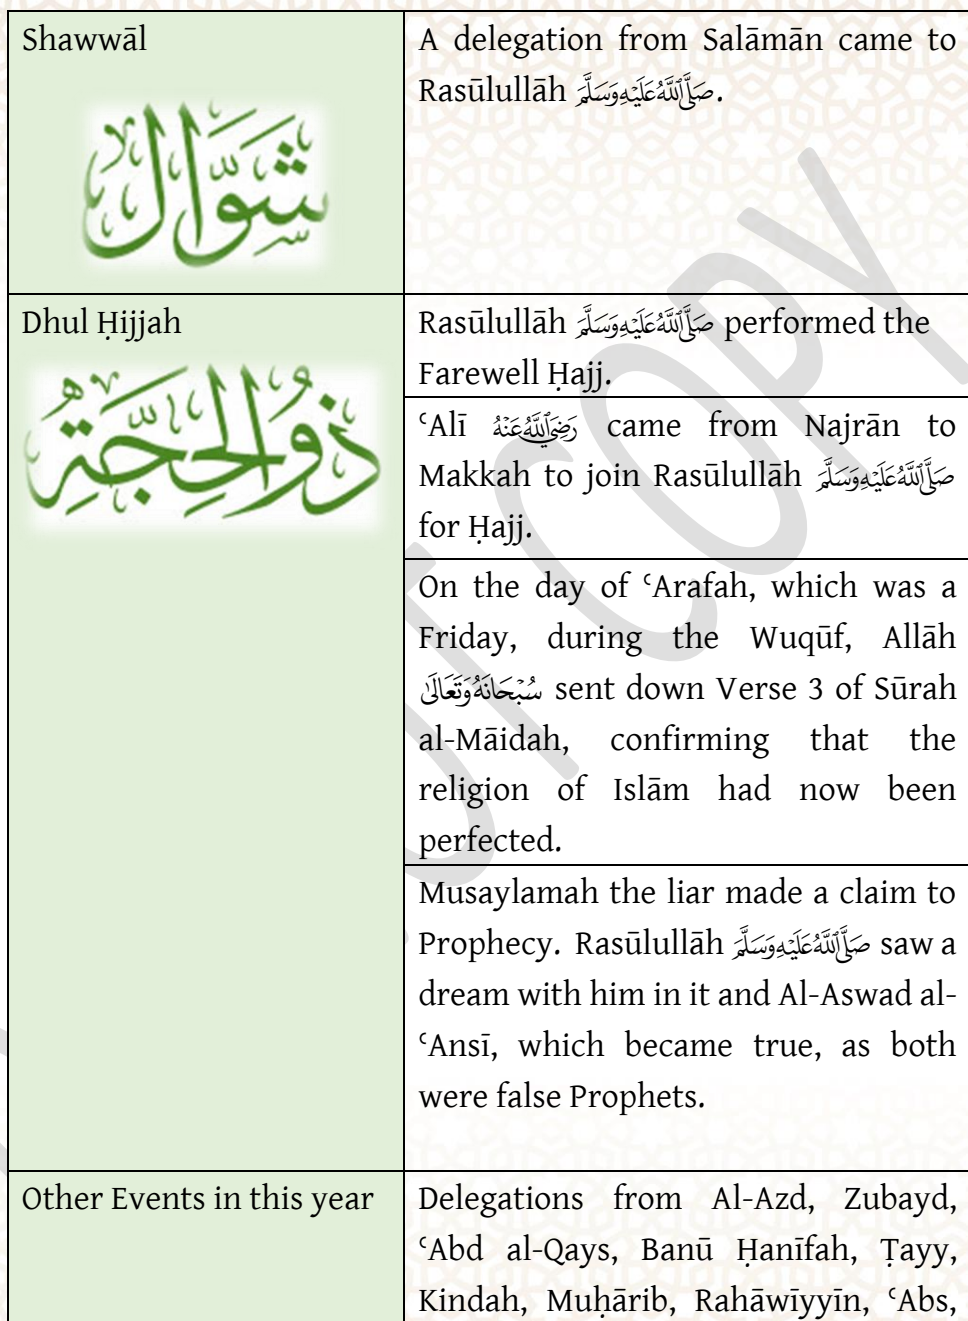 Shawwāl
شَوَّال
A delegation from Salāmān came to
Rasūlullāh صَلَّى ٱللَّهُ عَلَيْهِ وَسَلَّمَ.
Dhul Ḥijjah
ذُو الْحِجَّةِ
Rasūlullāh صَلَّى ٱللَّهُ عَلَيْهِ وَسَلَّمَ performed the
Farewell Ḥajj.
ʿAlī رَضِيَ ٱللَّهُ عَنْهُ came from Najrān to
Makkah to join Rasūlullāh صَلَّى ٱللَّهُ عَلَيْهِ وَسَلَّمَ
for Ḥajj.
On the day of ʿArafah, which was a
Friday, during the Wuqūf, Allāh
سُبْحَانَهُ وَتَعَالَىٰ sent down Verse 3 of Sūrah
al-Māidah, confirming that the
religion of Islām had now been
perfected.
Musaylamah the liar made a claim to
Prophecy. Rasūlullāh صَلَّى ٱللَّهُ عَلَيْهِ وَسَلَّمَ saw a
dream with him in it and Al-Aswad al-
ʿAnsī, which became true, as both
were false Prophets.
Other Events in this year
Delegations from Al-Azd, Zubayd,
ʿAbd al-Qays, Banū Ḥanīfah, Ṭayy,
Kindah, Muḥārib, Rahāwīyyīn, ʿAbs,
COPY